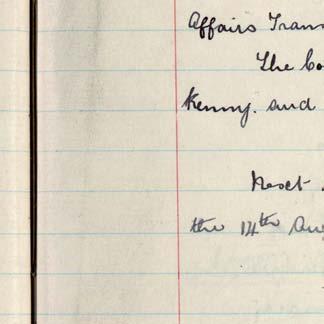 Affairs Trans
The Co
Kenny. and
Next
the 14th Au